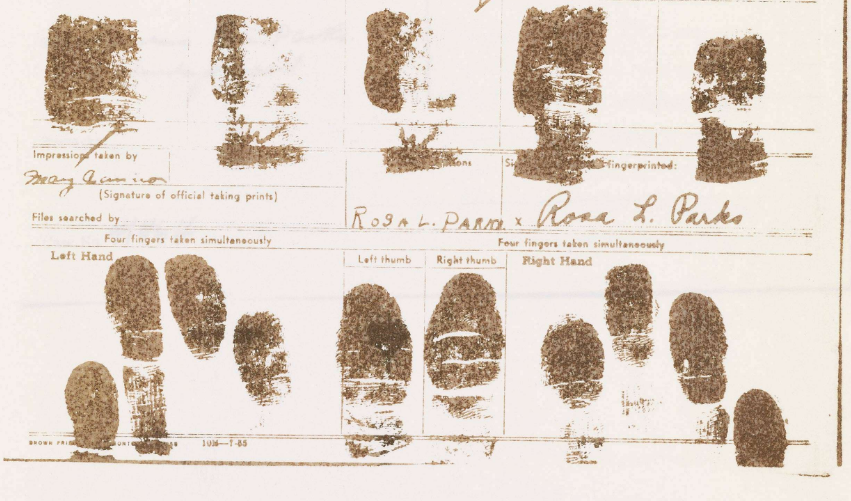 Impressions taken by
fingerprinted:
Mary
(Signature of official taking prints)
Files searched by
ROSA L. PARK x Rosa L. Parks
Four fingers taken simultaneously Four fingers taken simultaneously
Left Hand Left thumb Right thumb Right Hand
BROWN 10M—7-55